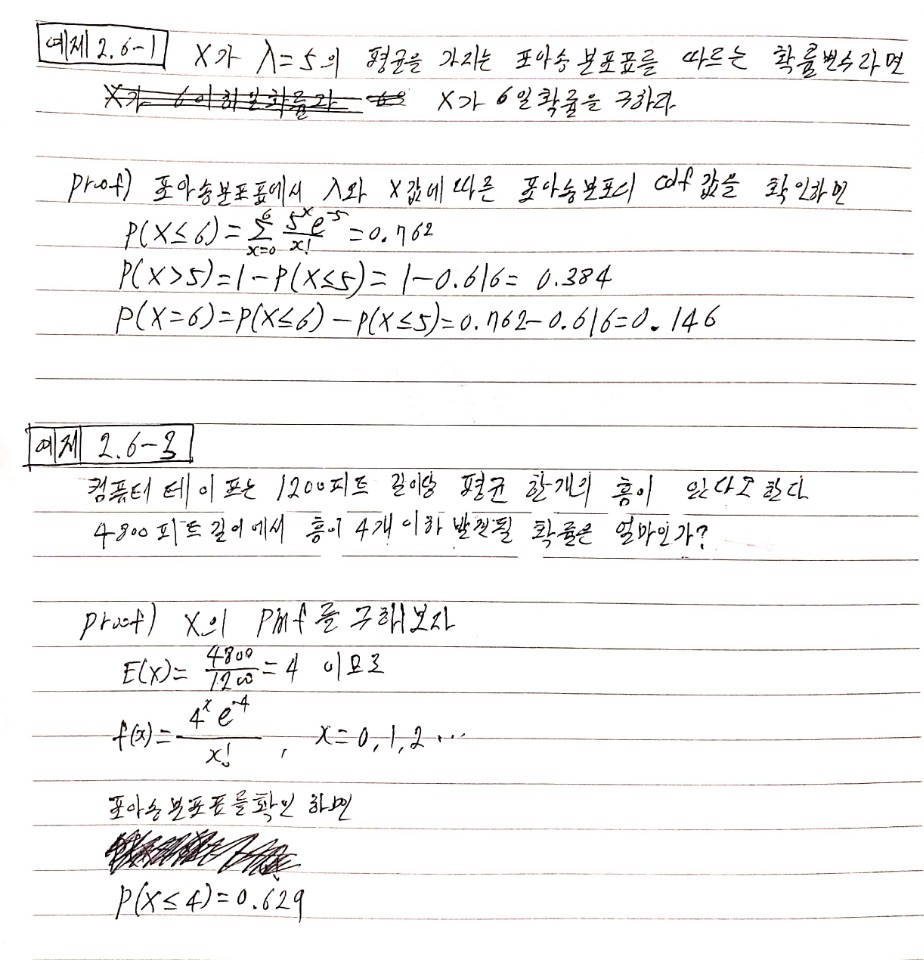 예제 2.6-1 X가 λ=5의 평균을 가지는 포아송 분포표를 따르는 확률변수라면
X가 6이하일 확률과 X가 6일 확률을 구하라
proof) 포아송분포표에서 λ와 X값에 따른 포아송분포의 cdf 값을 확인하면
P(X≤6)=∑_{x=0}^{6} 5^x e^{-5}/x! =0.762
P(X>5)=1-P(X≤5)=1-0.616=0.384
P(X=6)=P(X≤6)-P(X≤5)=0.762-0.616=0.146
예제 2.6-3
컴퓨터 테이프는 1200피트 길이당 평균 한개의 흠이 있다고 한다
4800피트 길이에서 흠이 4개 이하 발견될 확률은 얼마인가?
proof) X의 pmf를 구해보자
E(X)=4800/1200=4 이므로
f(x)=4^x e^{-4}/x!, x=0,1,2…
포아송분포표를 확인하면
P(X≤4)=0.629